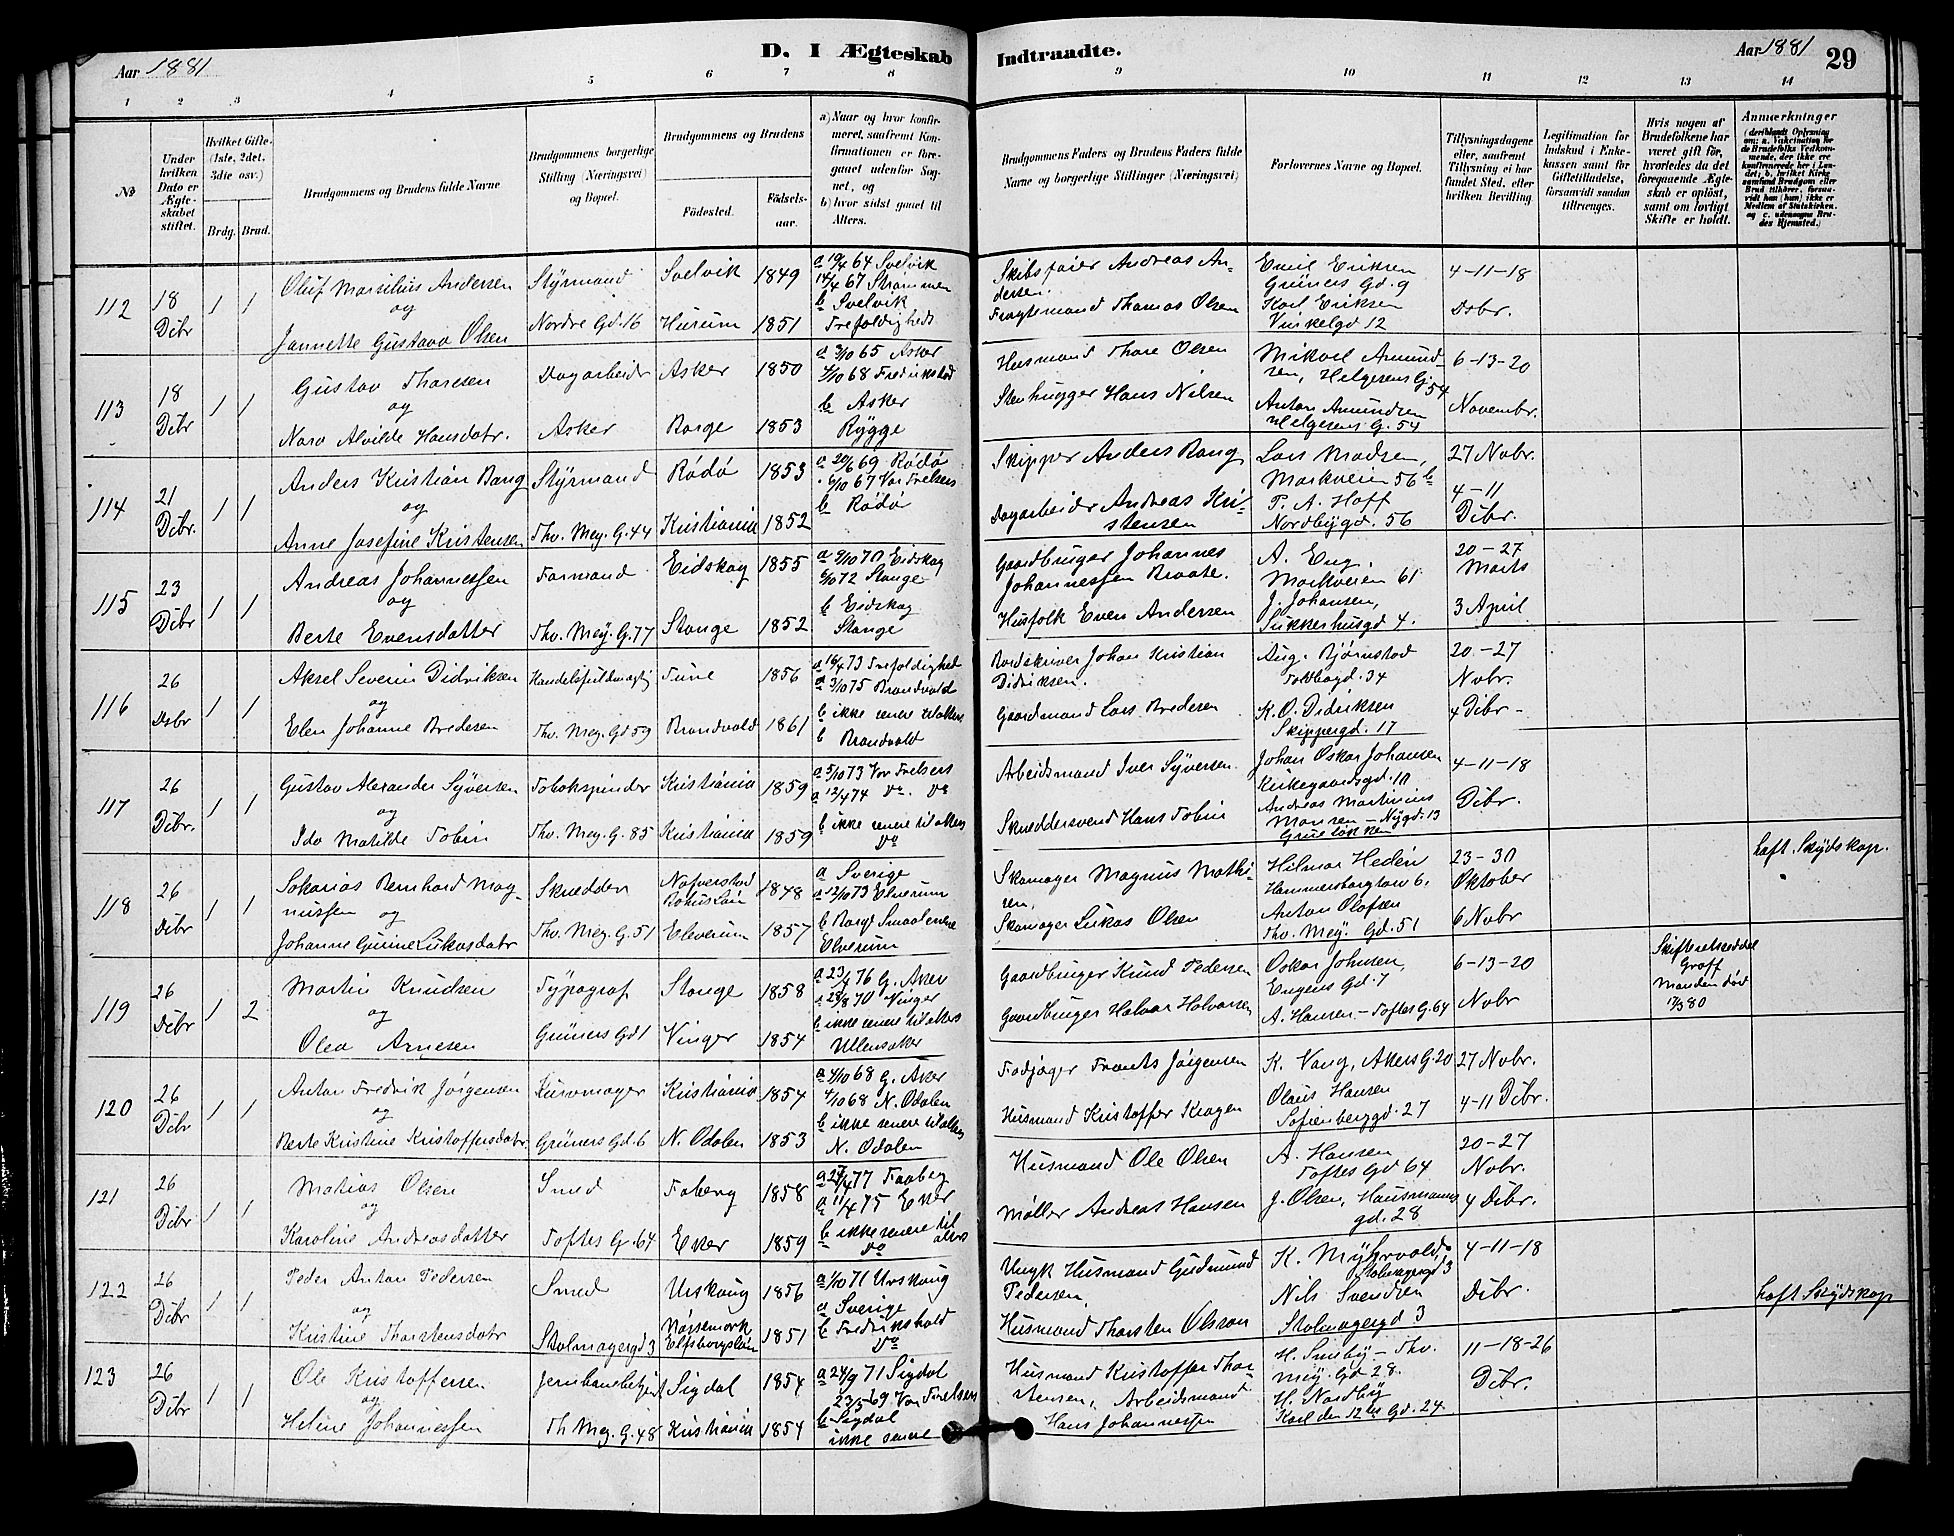 Aar 1881
D. I Ægteskab Indtraadte.
Aar 1881
29
1 2 3 4 5 6 7 8 9 10 11 12 13 14
No
Under hvilken Dato er Ægteskabet stiftet.
Hvilket Gifte (1ste, 2det, 3dte osv.)
Brdg. Brud.
Brudgommens og Brudens fulde Navne
Brudgommens borgerlige Stilling (Næringsvei) og Bopæl.
Brudgommens og Brudens
Födested.
Födselsaar.
a) Naar og hvor konfirmeret, saafremt Konfirmationen er foregaaet udenfor Sognet, og
b) hvor sidst gaaet til Alters.
Brudgommens Faders og Brudens Faders fulde Navne og borgerlige Stillinger (Næringsvei)
Forlovernes Navne og Bopæl.
Tillysningsdagene eller, saafremt Tillysning ei har fundet Sted, efter hvilken Bevilling
Legitimation for Indskud i Enkekassen samt for Giftetilladelse, forsaavidt saadan tiltrænges.
Hvis nogen af Brudefolkene har været gift för, hvorledes da det foregaaende Ægteskab er oplöst, samt om lovligt Skifte er holdt.
Anmærkninger
(deriblandt Oplysning om: a. Vakcination for de Brudefolks Vedkommende, der ikke ere konfirmerede her i Landet; b. hvilket Kirkesamfund Brudgom eller Brud tilhörer, forsaavidt han (hun) ikke er Medlem af Statskirken, og c. udensogns Brudes Hjemsted.)
112
18 Dcbr
1 1
Oluf Marsilius Andersen
og
Jannette Gustava Olsen
Styrmand
Nordre Gd. 16
Svelvik 1849
Hurum 1851
a 19/4 64 Svelvik
14/4 67 Strømmen
b Svelvik
Trefoldigheds
Skibsfører Andreas Andersen.
Fragtemand Thomas Olsen
Emil Eriksen
Grüners Gd. 9
Karl Eriksen
Vinkelgd 12
4-11-18
Dcbr.
113
18 Dcbr
1 1
Gustav Thoresen
og
Nara Alvilde Hansdatr.
Dagarbeider
Asker
Asker 1850
Borge 1853
a 3/10 65 Asker
4/10 68 Fredrikstad
b Asker
Rygge
Husmand Thore Olsen
Stenhugger Hans Nilsen
Mikael Amundsen, Helgesens G. 54
Anton Amundsen
Helgesens G. 54
6-13-20
Novembr.
114
21 Dcbr.
1 1
Anders Kristian Bang
og
Anne Josefine Kristensen
Styrmand
Thv. Mey. G. 44
Rødø 1853
Kristiania 1852
a 20/6 69 Rødø
6/10 67 Vor Frelsers
b Rødø
Skipper Anders Bang
Dagarbeider Andreas Kristensen
Lars Madsen,
Markveien 56 b
P. A. Hoff
Nordbygd. 56
27 Nobr.
4-11
Dcbr.
115
23 Dcbr
1 1
Andreas Johannessen
og
Berte Evensdatter
Formand
Thv. Mey. G. 77
Eidskog 1855
Stange 1852
a 9/10 70 Eidskog
6/10 72 Stange
b Eidskog
Stange
Gaardbruger Johannes
Johannessen Braate.
Husfolk Even Andersen
A. Eng,
Markveien 61
J. Johansen,
Sukkerhusgd 4.
20-27
Marts
3 April
116
26 Dcbr
1 1
Aksel Severin Didriksen
og
Elen Johanne Bredesen
Handelsfuldmægtig
Thv. Meg. Gd 59
Tune 1856
Brandvold 1861
a 16/4 73 Trefoldighed
a 3/10 75 Brandvold
b ikke senere til alters
b Brandvold
Bordskriver Johan Kristian
Didriksen.
Gaardmand Lars Bredesen
Aug. Bjørnstad
Toldbogd. 34
K. O. Didriksen
Skippergd. 17
20-27
Nobr.
4 Dcbr -
117
26 Dcbr.
1 1
Gustav Alexander Syversen
og
Ida Matilde Tobin
Tobakspinder
Thv. Mey. G. 85
Kristiania 1859
Kristiania 1859
a 5/10 73 Vor Frelsers
a 12/4 74 Do. Do
b ikke senere til alters
Do
Arbeidsmand Iver Syversen.
Skræddersvend Hans Tobin
Johan Oskar Johansen
Kirkegaardsgd. 10
Andreas Martinius
Monsen - Nygd. 13
Grueløkken
4-11-18
Dcbr.
118
26 Dcbr
1 1
Sakarias Bernhard Magnussen
og
Johanne Gurine Lukasdatr
Skrædder
Thv. Mey. G. 51
Bohuslän 1848
Elverum 1857
a Sverige
a 12/10 73 Elverum
b Borge Smaalenene
Elverum
Skomager Magnus Mathisen,
Skomager Lukas Olsen
Hilmar Hedén
Hammersborgtorv 6,
Anton Olafsen
Thv. Mey. Gd. 51
23-30
Oktober
6 Nobr
haft Skydskop.
119
26 Dcbr
1 2
Martin Knudsen
og
Olea Arnesen
Typograf
Grüners Gd 1
Stange 1858
Vinger 1854
a 23/4 76 G. Aker
a 28/8 70 Vinger
b ikke senere til alters
Ullensaker
Gaardbruger Knud Pedersen
Gaardbruger Halvor Halvorsen
Oskar Johnsen,
Engens Gd. 7
A. Hansen - Toftes G. 64
6-13-20
Nobr
Skifteretseddel
Graff
Manden død
17/3 80
120
26 Dcbr
1 1
Anton Fredrik Jørgensen
og
Berte Kristine Kristoffersdatr
Kurvmager
Grüners Gd. 6
Kristiania 1854
N. Odalen 1853
a 4/10 68 G. Aker
4/10 68 N. Odalen
b ikke senere til alters
N. Odalen
Fodjæger Frants Jørgensen
Husmand Kristoffer Kragen
K. Vang, Akers G. 20
Olaus Hansen
Sofienberggd. 27
27 Nobr.
4-11 Dcbr.
121
26 Dcbr
1 1
Matias Olsen
og
Karoline Andreasdatter
Smed
Toftes G. 64
Faberg 1858
Eker 1859
a 27/4 77 Faaberg
a 11/4 75 Eker
b ikke senere til alters
Do
Husmand Ole Olsen
Møller Andreas Hansen
A. Hansen
Toftes Gd 64
J. Olsen, Hausmannsgd. 28
20-27
Nobr.
4 Dcbr.
122
26 Dcbr
1 1
Peder Anton Pedersen
og
Kristine Thorstensdatr
Smed
Stolmagergd 3
Urskoug 1856
Nøssemark
Elfsborgslän 1851
a 1/10 71 Urskoug
a Sverige
b Fredrikshald
Do
Ungk Husmand Gudmund
Pedersen,
Husmand Thorsten Olsson
K. Myhrvold,
Stolmagergd 3
Nils Svendsen
Stolmagergd 3
4-11-18
Dcbr.
haft Skydskop
123
26 Dcbr
1 1
Ole Kristoffersen
og
Heline Johannessen
Jernbanebetjent
Th Mey. G. 48
Sigdal 1854
Kristiania 1854
a 24/9 71 Sigdal
23/5 69 Vor Frelsers
b Sigdal
ikke senere
Husmand Kristoffer Thorstensen, Arbeidsmand
Hans Johannessen
H. Smeby - Thv.
Mey. Gd 28.
H. Nordby
Karl den 12tes Gd. 24
11-18-26
Dcbr.